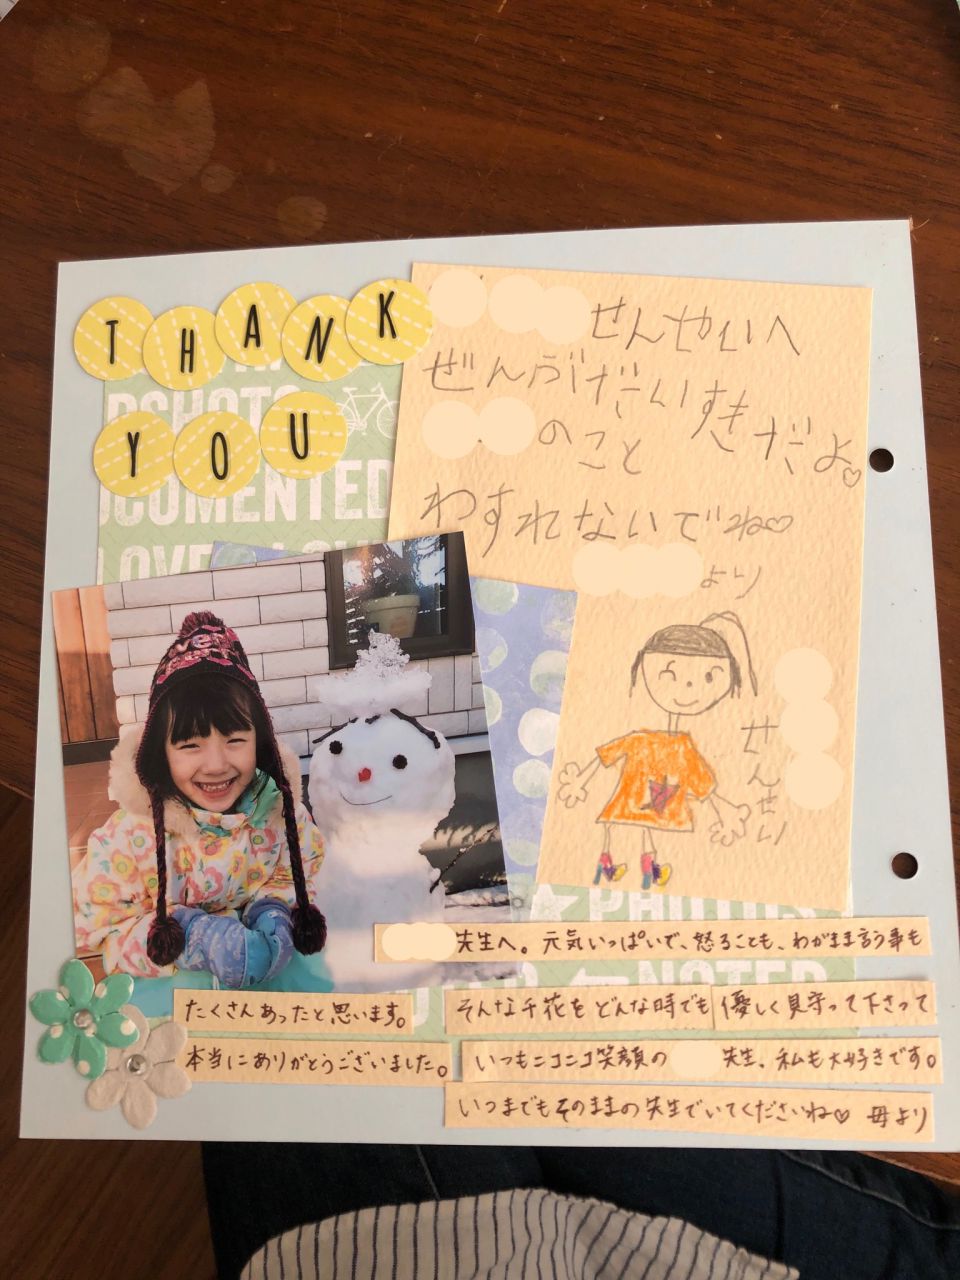 THANK
YOU
せんせいへ
ぜんぶだいすきだよ♡
のこと
わすれないでね♡
より
せんせい
PSHOTS
OCUMENTED
LOVE
PHOTOS
NOTED
先生へ。元気いっぱいで、怒ることも、わがまま言う事も
たくさんあったと思います。
そんな千花をどんな時でも優しく見守って下さって
本当にありがとうございました。
いつもニコニコ笑顔の 先生、私も大好きです。
いつまでもそのままの先生でいてくださいね♡ 母より